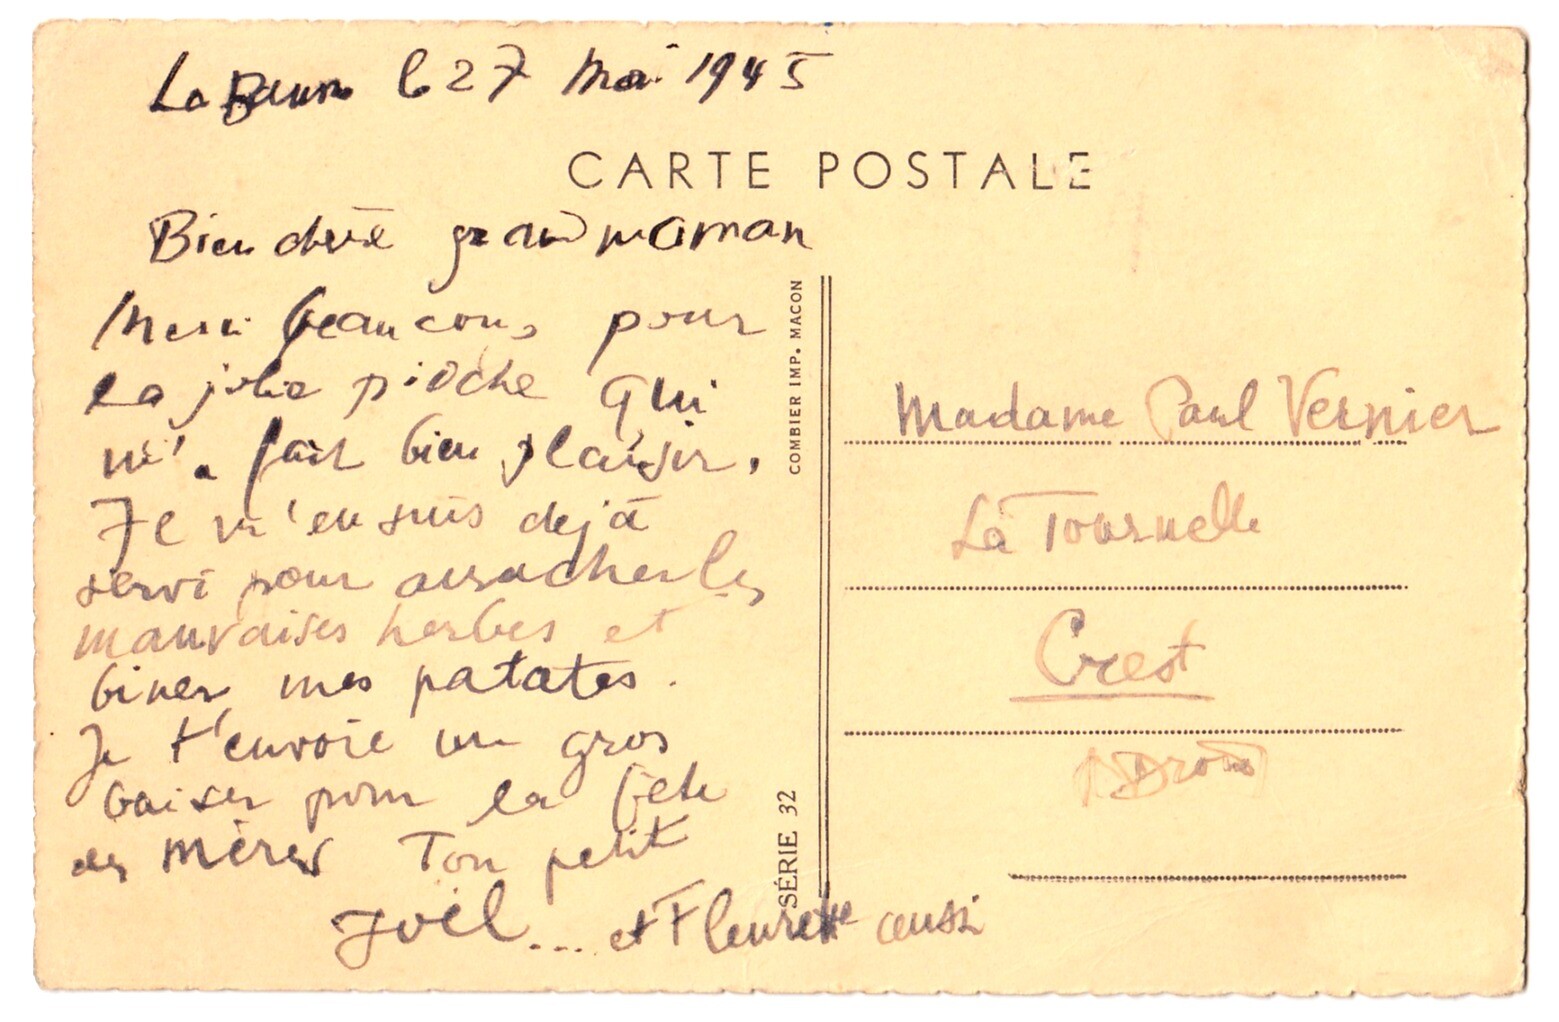 La le 27 Mai 1945
CARTE POSTALE
Bien chère grand maman
Merci beaucoup pour
la jolie pioche qui
m'a fait bien plaisir.
Je m'en suis dejà
servi pour arracher les
mauvaises herbes et
biner mes patates.
Je t'envoie un gros
baiser pour la fête
des mères Ton petit
Joël.... et Fleurette aussi
COMBIER IMP. MACON
SÉRIE 32
Madame Paul Vernier
La Tournelle
Crest
(Drome)